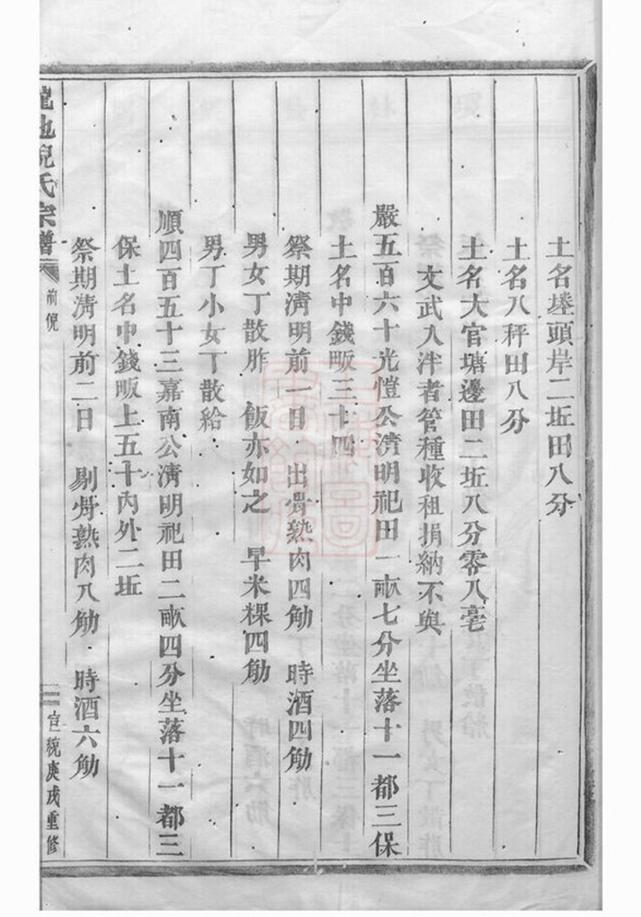 土名塦頭岸二坵田八分
土名八秤田八分
土名大官塘邊田二坵八分零八毫
文武入泮者管種收租捐納不與
嚴五百六十光愷公淸明祀田一畝七分坐落十一都三保
土名中錢畈三十四
祭期淸明前一日 出骨熟肉四觔 時酒四觔
男女丁散胙 飯亦如之 早米粿四觔
男丁小女丁散給
順四百五十三嘉南公淸明祀田二畝四分坐落十一都三
保土名中錢畈上五十內外二坵
祭期淸明前二日 剔骨熟肉八觔 時酒六觔
龍池倪氏宗譜 前倪 宣統庚戌重修